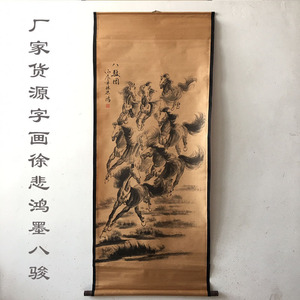 厂家货源字画徐悲鸿墨八骏
八骏图